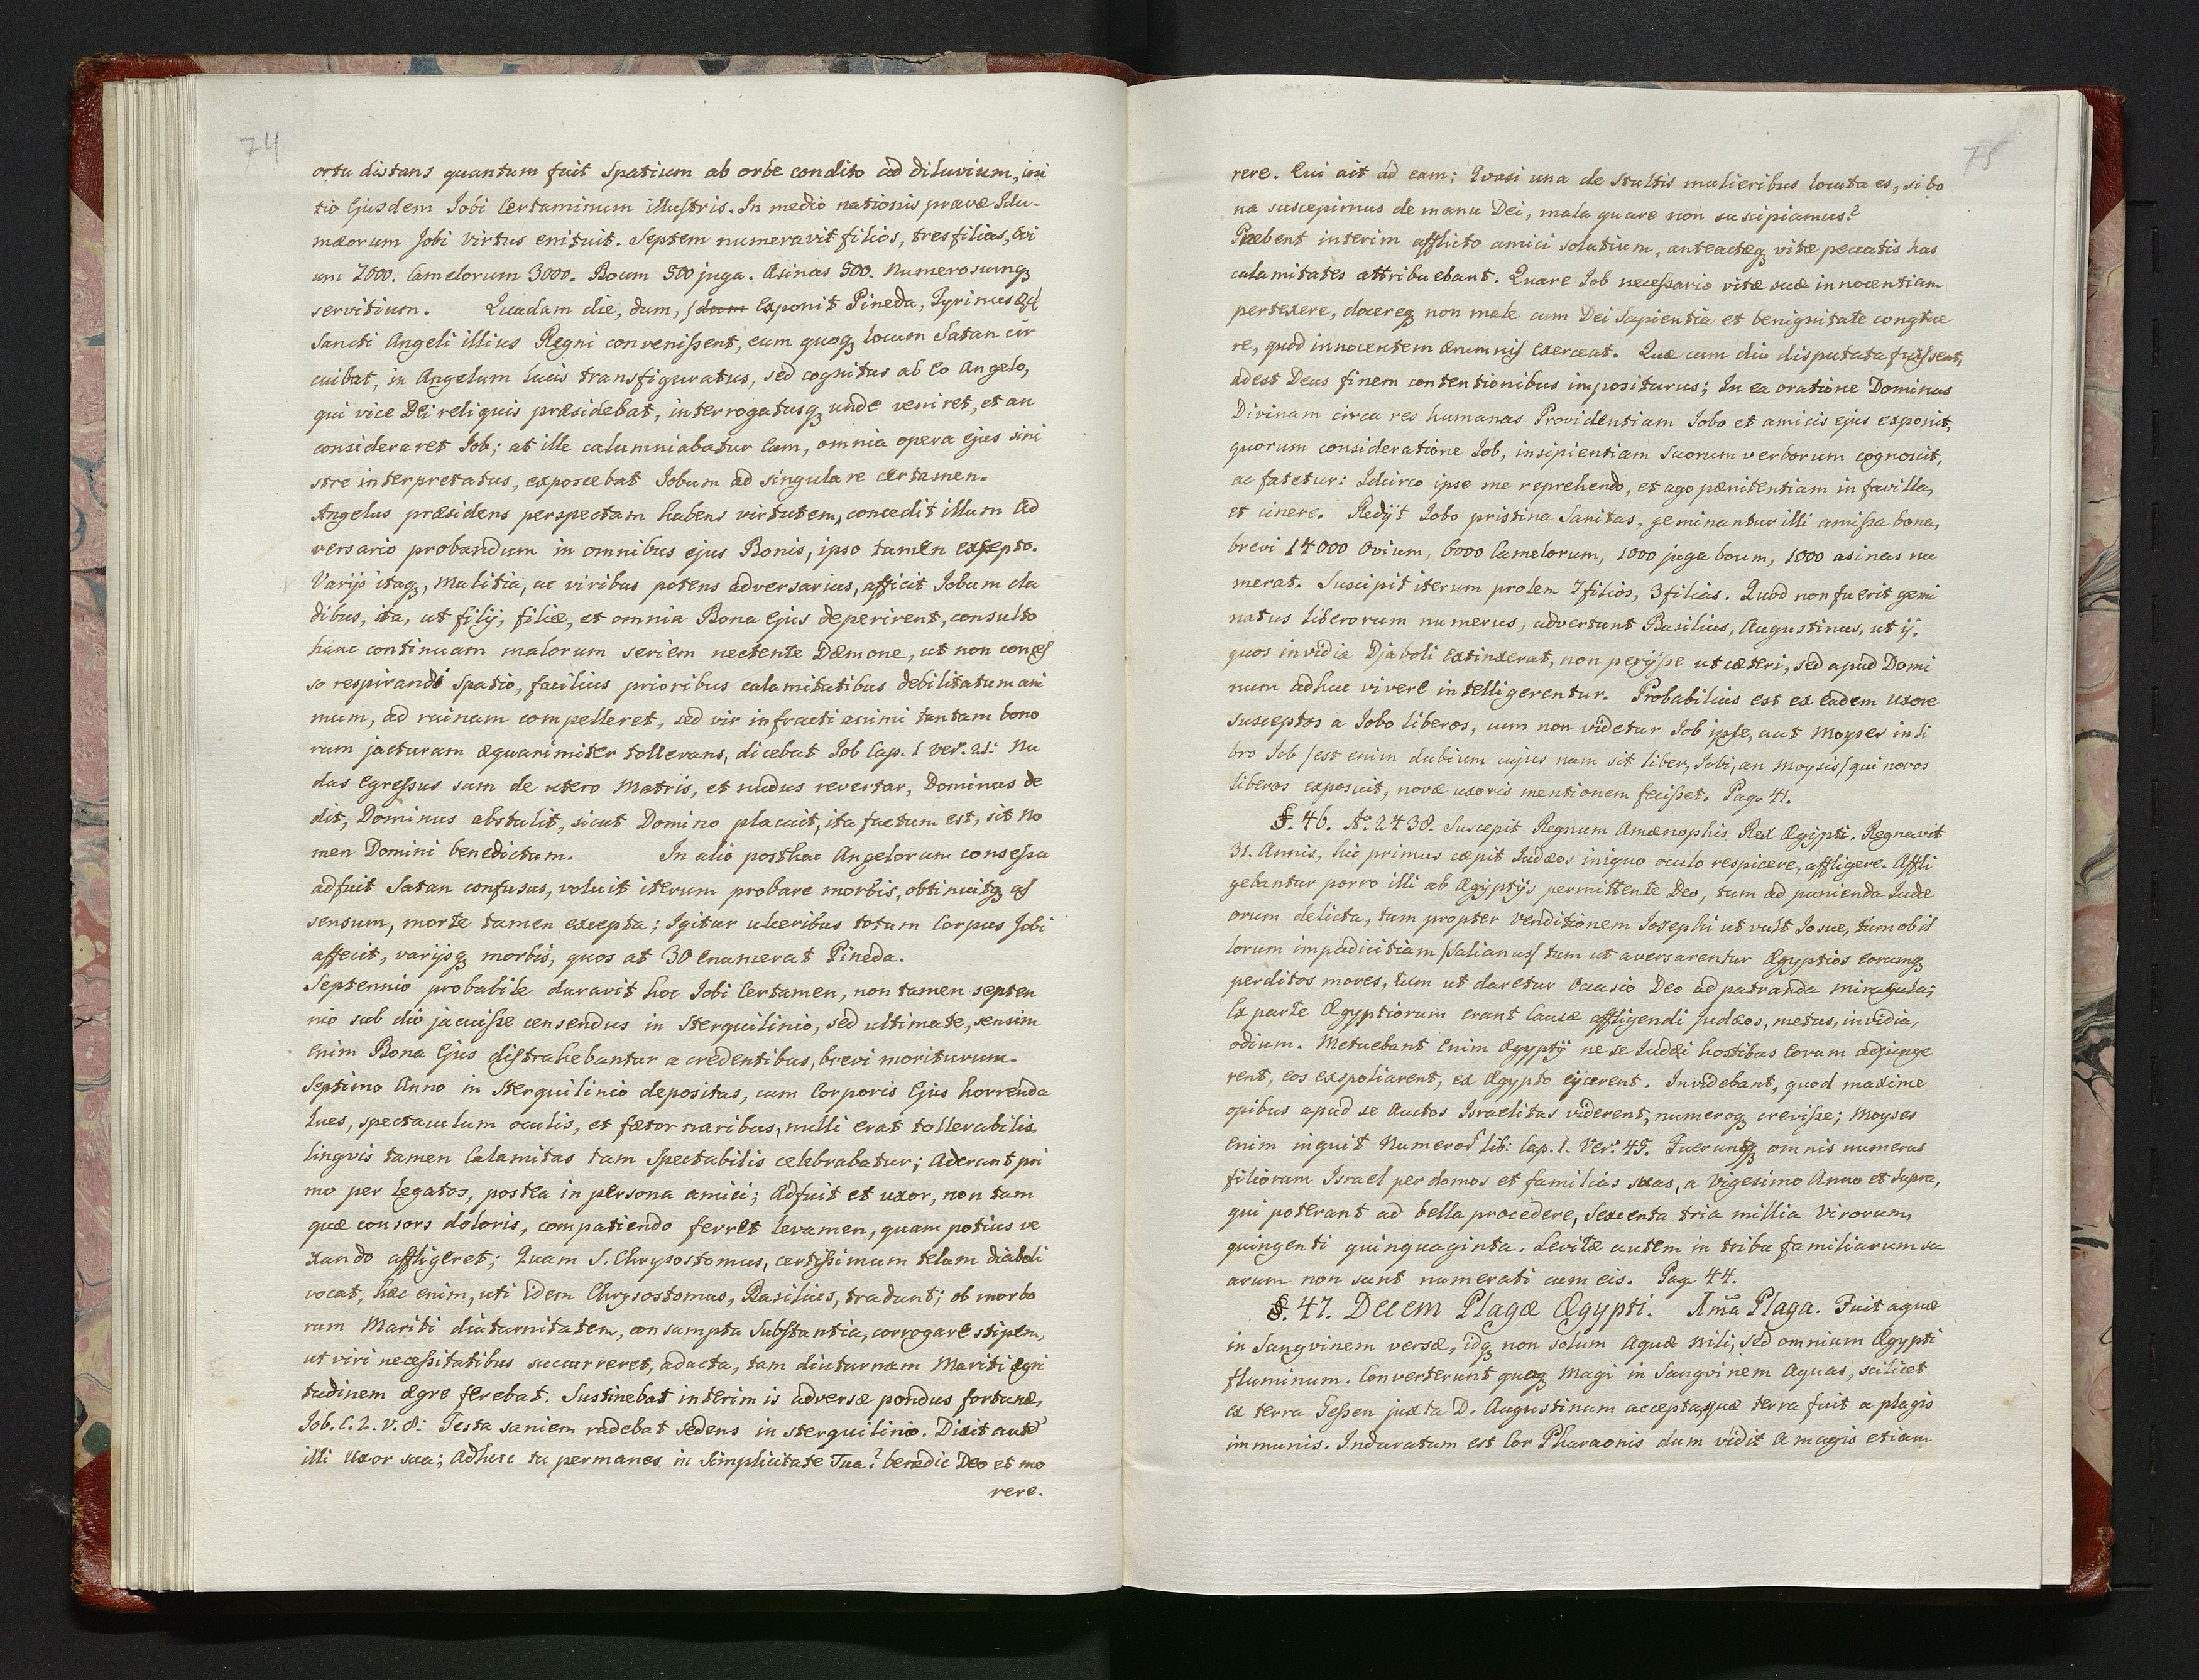 74
ortu distans quantum fuit Spatium ab orbe condito ad diluvium, ini
tio Ejusdem Jobi Certaminum illustris. In medio nationis pravæ Idu-
mæorum Jobi Virtus enituit. Septem numeravit filios, tres filias, Ovi
um 7000. Camelorum 3000. Boum 500 juga. Asinas 500. Numerosumq;
servitium. Quadam die, dum, /dum Exponit Pineda, Tyrinus &c/
Sancti Angeli illius Regni convenissent, eum quoq; locum Satan cir
cuibat, in Angelum lucis transfiguratus, sed cognitus ab Eo Angelo,
qui vice Dei reliquis præsidebat, interrogatusq; unde veniret, et an
consideraret Job; at ille calumniabatur Eum, omnia opera ejus sini
stre interpretatus, exposcebat Jobum ad singulare certamen.
Angelus præsidens perspectam habens virtutem, concedit illum Ad
versario probandum in omnibus ejus Bonis, ipso tamen excepto.
Varijs itaq; Malitia, ac viribus potens adversarius, afficit Jobum cla
dibus, ita, ut filij, filiæ, et omnia Bona Ejus deperirent, consulto
hanc continuam malorum seriem nectente Dæmone, ut non conces
so respirandi spatio, facilius prioribus calamitatibus debilitatum ani
mum, ad ruinam compelleret, sed vir infracti animi tantam bono
rum jacturam æquanimiter tollerans, dicebat Job Cap. 1 Ver. 21: Nu
dus Egressus sum de utero Matris, et nudus revertar, Dominus de
dit, Dominus abstulit, sicut Domino placuit, ita factum est, sit No
men Domini benedictum. In alio posthac Angelorum consessu
adfuit Satan confusus, voluit iterum probare morbis, obtinuitq; as
sensum, morte tamen excepta; Igitur ulceribus totum Corpus Jobi
affecit, varijsq; morbis, quos at 30 Enumerat Pineda.
Septennio probabile duravit hoc Jobi Certamen, non tamen septen
nio sub dio jacuisse censendus in Sterquilinio, sed ultimate, sensim
Enim Bona Ejus distrahebantur a credentibus, brevi moriturum.
Septimo Anno in Sterquilinio depositus, cum Corporis Ejus horrenda
lues, spectaculum oculis, et fætor naribus, nulli erat tollerabilis.
lingvis tamen Calamitas tam Spectabilis celebrabatur; Aderant pri
mo per Legatos, postea in persona amici; Adfuit et uxor, non tam
quæ consors doloris, compatiendo ferret levamen, quam potius ve
xando affligeret; Quam S. Chrysostomus, certissimum telum diaboli
vocat, hæc enim, uti idem Chrysostomus, Basilius, tradunt; ob morbo
rum Mariti diuturnitatem, consumpta Substantia, corrogare stipem,
ut viri necessitatibus succurreret, adacta, tam diuturnam Mariti ægri
tudinem ægre ferebat. Sustinebat interim is adversæ pondus fortunæ,
Job. C. 2. v. 8: Testa saniem radebat sedens in sterquilinio. Dixit autē
illi Uxor sua; Adhuc tu permanes in Simplicitate Tua? benedic Deo et mo
rere.
75
rere. Cui ait ad eam; Quasi una de stultis mulieribus locuta es, si bo
na suscepimus de manu Dei, mala quare non suscipiamus?
Præbent interim afflicto amici solatium, anteactæq; vitæ peccatis has
calamitates attribuebant. Quare Job necessario vitæ suæ innocentiam
pertexere, docereq; non male cum Dei Sapientia et benignitate congrue
re, quod innocentem ærumnis Exerceat. Quæ cum diu disputata fuissent,
adest Deus finem contentionibus impositurus; In ea oratione Dominus
Divinam circa res humanas Providentiam Jobo et amicis ejus exponit,
quorum consideratione Job, insipientiam Suorum verborum cognoscit,
ac fatetur: Idcirco ipse me reprehendo, et ago pænitentiam in favilla,
et cinere. Redijt Jobo pristina Sanitas, geminantur illi amissa bona,
brevi 14000 Ovium, 6000 Camelorum, 1000 juga boum, 1000 asinas nu
merat. Suscipit iterum prolem 7 filios, 3 filias. Quod non fuerit gemi
natus liberorum numerus, advertunt Basilius, Augustinus, ut ij,
quos invidia Djaboli Extinxerat, non perijsse ut cæteri, sed apud Domi
num adhuc vivere intelligerentur. Probabilius est ex Eadem Uxore
susceptos a Jobo liberos, cum non videtur Job ipse, aut Moyses in li
bro Job /est enim dubium cujus nam sit liber, Jobi, an Moysis/ qui novos
liberos exposuit, novæ uxoris mentionem fecisset. Pag. 41.
§. 46. Aº. 2438. Suscepit Regnum Amænophis Rex Ægypti. Regnavit
31. Annis, hic primus cæpit Judæos iniquo oculo respicere, affligere. Affli
gebantur porro illi ab Ægyptijs permittente Deo, tum ad punienda Jude
orum delicta, tum propter Venditionem Josephi ut vult Josue, tum ob il
lorum impudicitiam /Salianus/ tum ut aversarentur Ægyptios Eorumq;
perditos mores, tum ut daretur Occasio Deo ad patranda miracula;
Ex parte Ægyptiorum erant Causæ affligendi Judæos, metus, invidia,
odium. Metuebant Enim Ægyptij ne se Judæi hostibus Eorum adjunge
rent, eos exspoliarent, ex Ægypto ejicerent. Invidebant, quod maxime
opibus apud se Auctos Israelitas viderent, numeroq; crevisse; Moyses
Enim inquit Numeror. lib: Cap. 1. Ver. 45. Fueruntq; omnis numerus
filiorum Israel per domos et familias suas, a Vigesimo Anno et supra,
qui poterant ad bella procedere, Sexcenta tria millia Virorum,
quingenti quinquaginta. Levitæ autem in tribu familiarum su
arum non sunt numerati cum eis. Pag. 44.
§. 47. Decem Plagæ Ægypti. 1mā Plaga. Fuit aquæ
in Sangvinem versæ, idq; non solum Aquæ Nili, sed omnium Ægypti
fluminum. Converterunt quoq; Magi in Sangvinem Aquas, scilicet
ex terra Gessen juxta D. Augustinum acceptas, quæ terra fuit a plagis
immunis. Induratum est Cor Pharaonis dum vidit a magis etiam